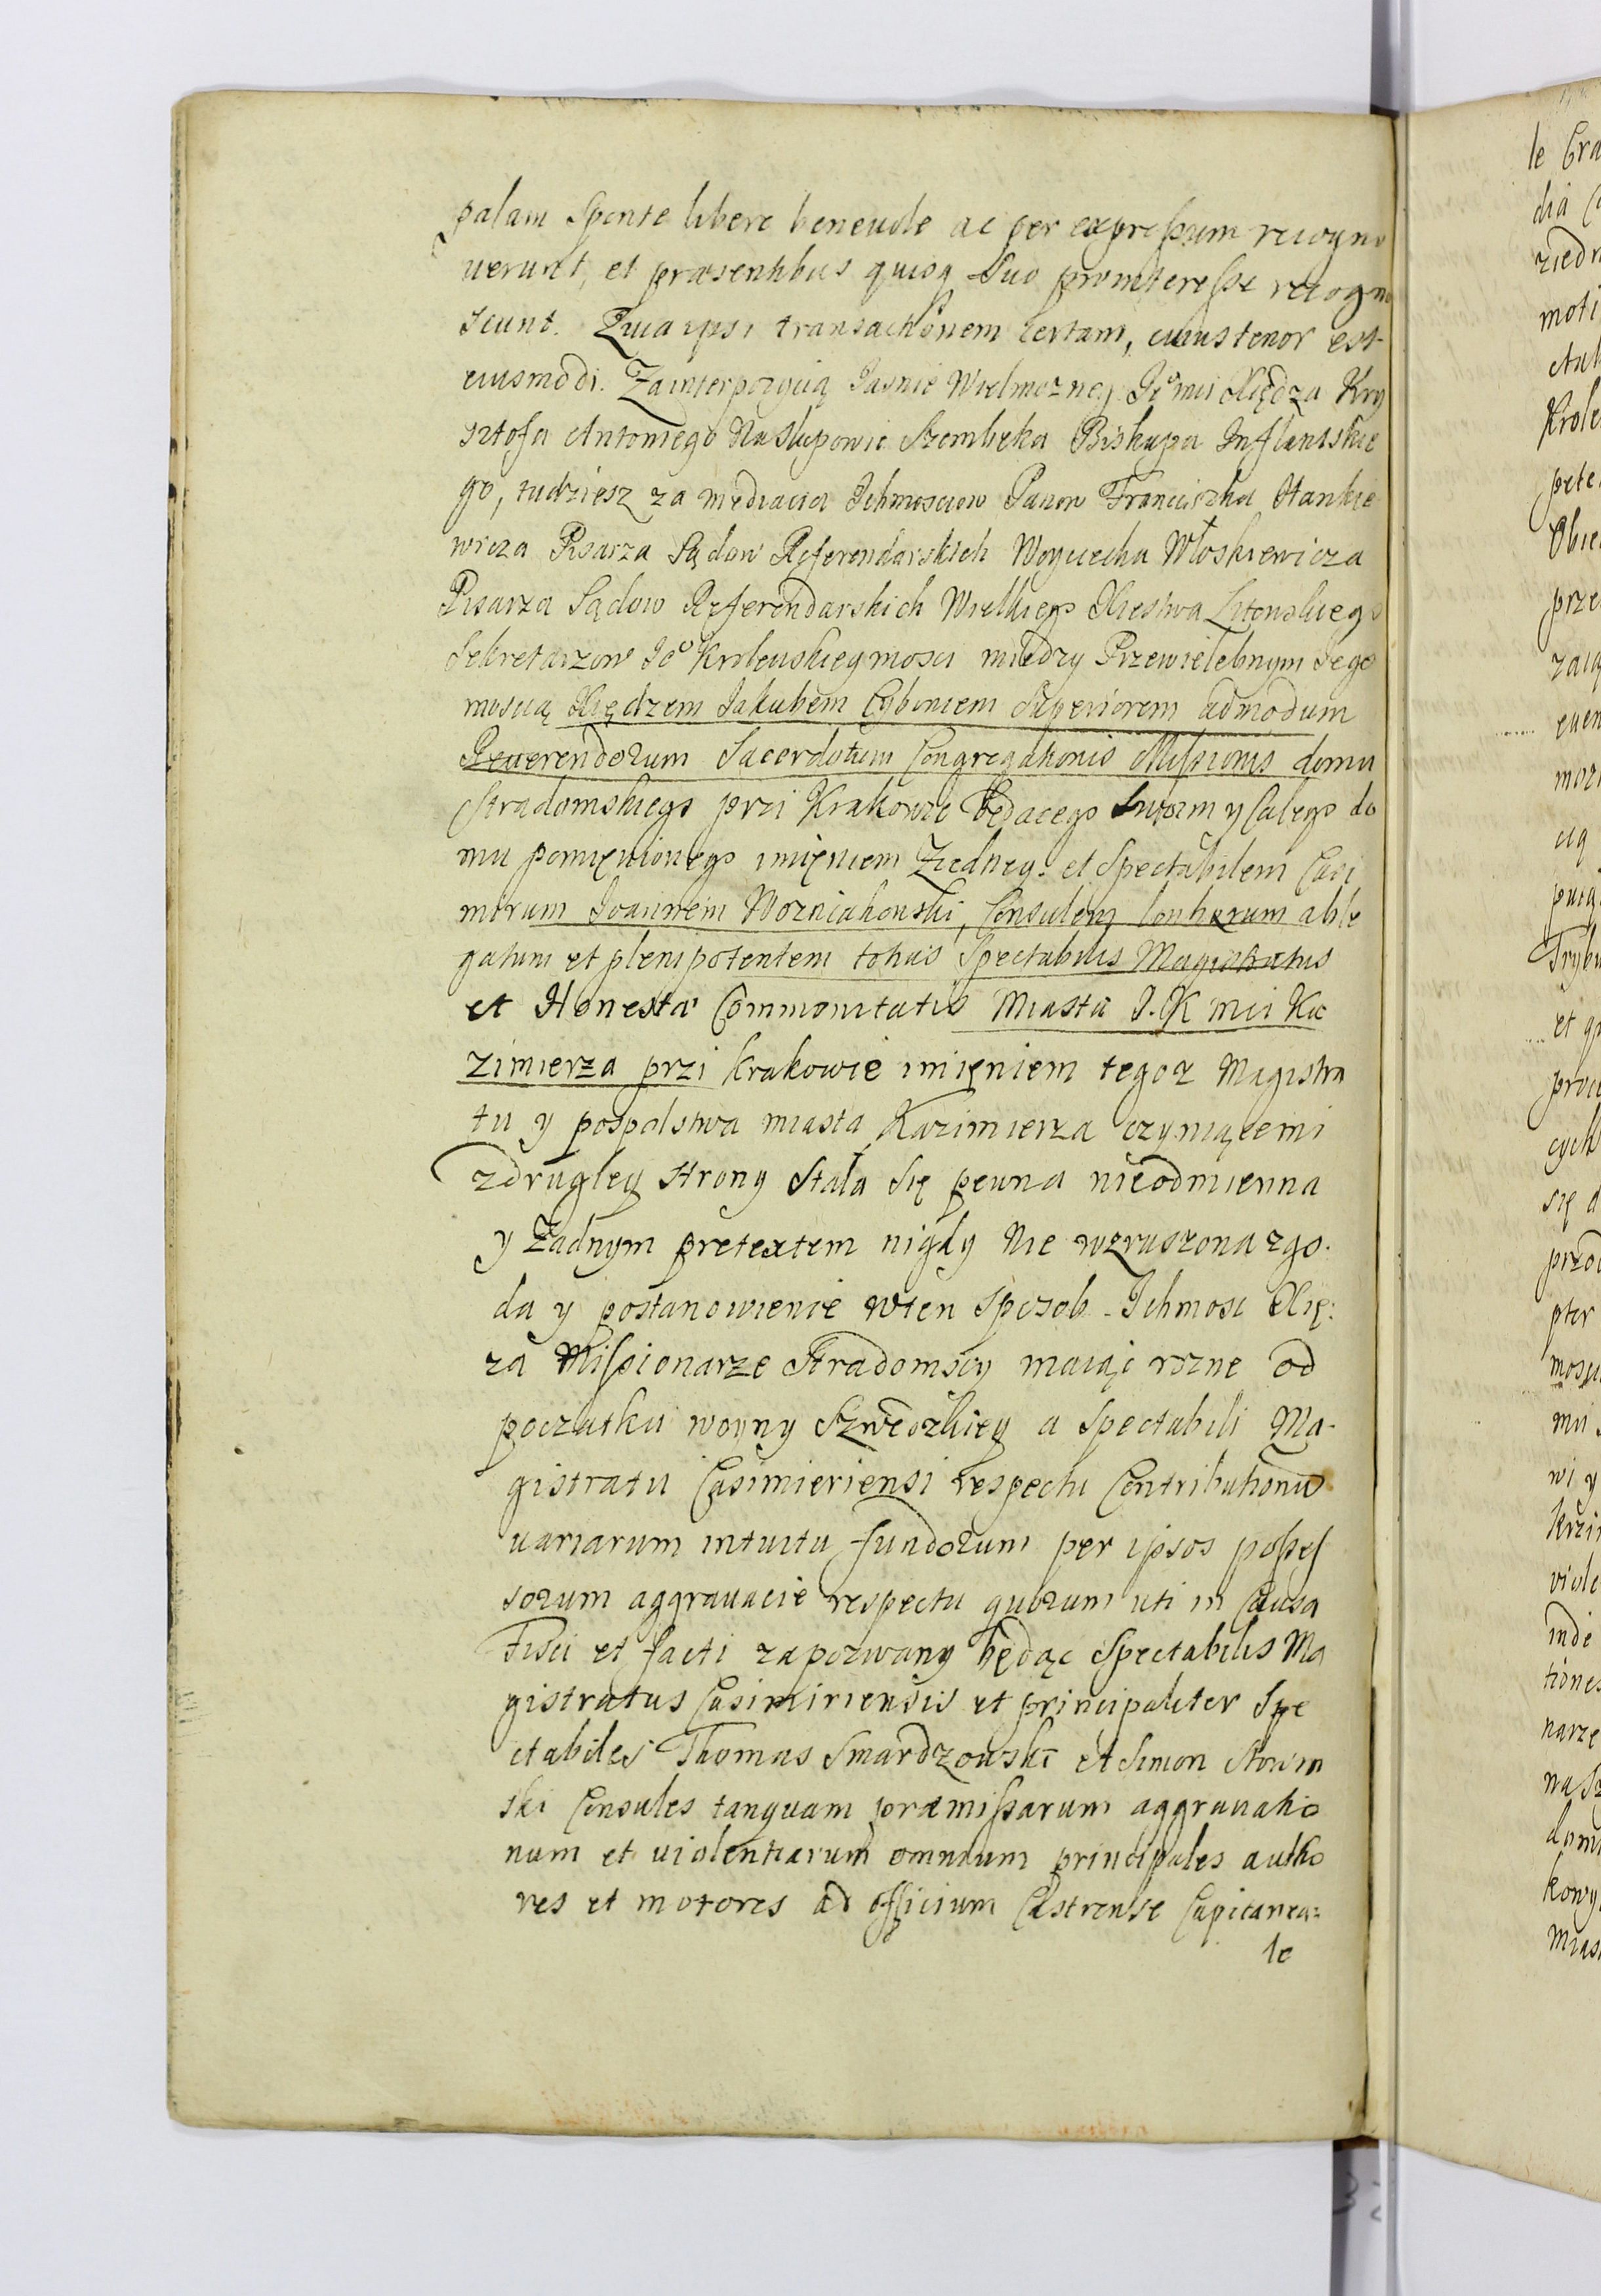 palam Sponte libere beneuole ac per expreßum recogno
uerunt, et præsentibus quisq Suo prointereße recogno
scunt. Quia ipsi transactionem certam, cuius tenor est
eiusmodi. Zainterpozycią Jasnie Wielmozney Jeo mci Xiędza Kry
sztofa Antoniego Nasłupowie Szembeka Biskupa Inflantskie
go, tudziesz za mediacia Ichmosciow Panow Franciszka Stankie
wicza Pisarza Sądow Referendarskich Woyciecha Włoskiewicza
Pisarza Sądow Referendarskich Wielkiego Xiestwa Litewskiego
Sekretarzow Jeo Krolewskieymosci miedzy Przewielebnym Jego
moscią Xiędzem Jakubem Cyboniem Superiorem admodum
Reuerendorum Sacerdotum Congregationis Mißionis domu
Stradomskiego przi Krakowie będacego Swoim y Całego do
mu pomienionego imięniem Ziedney. et Spectabilem Casi
mirum Joannem Wozniakowski, Consulem Centuerum able
gatum et plenipotentem totius Spectabilis Magistratus
et Honesta Commonitatis Miasta J. K mci Ka
zimierza przi Krakowie imięniem tegoz Magistra
tu y pospolstwa miasta Kazimierza czyniącemi
zdrugiey strony Stała Się pewna nieodmienna
y Zadnym pretextem nigdy Nie wzruszona zgo.
da y postanowienie wten Sposob. Ichmosc Xię:
za Mißionarze Stradomscy maiąc rozne od
początku woyny Szwedzkiey a Spectabili Ma-
gistratu Casimieriensi respectu Contributionū
uariarum intuitu fundorum per ipsos poßeſ
sorum aggrauacie respectu quorum uti in Causa
Fisci et facti zapozwany będąc Spectabilis Ma
gistratus Casimiriensis et principaliter Spe
ctabiles Thomas Smardzowski et Simon Słowin
ski Consules tanquam præmißarum aggrauatio
num et uiolentiarum omnium principales autho
res et motores ad officium Castrense Capitanea:
le